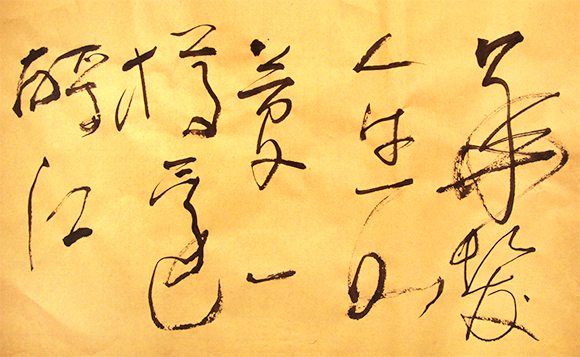 華髮
人生如
夢一
樽還
酹江